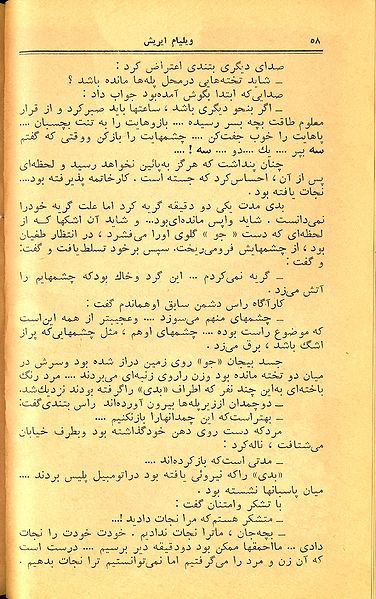 ۵۸ ویلیام ایریش
صدای دیگری بتندی اعتراض کرد :
ــ شاید تخته‌هایی درمحل پله‌ها مانده باشد ؟
صدایی‌که ابتدا بگوش آمده‌بود جواب داد :
ــ اگر بنحو دیگری باشد ، ساعتها باید صبرکرد و از قرار
معلوم طاقت بچه بسر رسیده .... بازوهایت را به تنت بچسبان ....
پاهایت را خوب جفت‌کن .... چشمهایت را بازکن ووقتی که گفتم
سه بپر .... یك ....دو .... سه ! ....
چنان پنداشت که هرگز به‌پائین نخواهد رسید و لحظه‌ای
پس از آن ، احساس‌کرد که جسته است . کارخاتمه پذیرفته بود....
نجات یافته بود .
بدی مدت یکی دو دقیقه گریه کرد اما علت گریه خودرا
نمی‌دانست . شاید واپس مانده‌ای‌بود... و شاید آن اشکها که از
لحظه‌ای که دست « جو » گلوی اورا می‌فشرد ، در انتظار طغیان
بود ، از چشمهایش فرومی‌ریخت. سپس برخود تسلط‌یافت و گفت:
و گفت :
ــ گریه نمی‌کردم ... این گرد وخاك بودکه چشمهایم را
آتش می‌زد .
کارآگاه راس دشمن سابق اوهماندم گفت :
ــ چشمهای منهم می‌سوزد .... وعجیبتر از همه این‌است
که موضوع راست بوده .... چشمهای اوهم ، مثل چشمهایی‌که پراز
اشگ باشد ، برق می‌زد .
جسد بیجان «جو» روی زمین دراز شده بود وسرش در
میان دو تخته مانده بود وزن راروی زنبه‌ای می‌بردند .... مرد رنگ
باخته‌ای به‌این چند نفر که اطراف «بدی» راگرفته بودند نزدیك‌شد.
ــ دوچمدان اززیرپله‌ها بیرون آورده‌اند راس بتندی‌گفت:
ــ بهتراست‌که این چمدانهارا بازنکنیم ....
مردکه دست روی دهن خودگذاشته بود وبطرف خیابان
می‌شتافت ، ناله‌کرد :
ــ مدتی است‌که بازکرده‌اند ....
«بدی» راکه نیروئی یافته بود دراتومبیل پلیس بردند ....
میان پاسبانها نشسته بود .
با تشکر وامتنان گفت :
ــ متشکر هستم‌که مرا نجات دادید !...
ــ بچه‌جان ، ماترا نجات ندادیم . خودت خودت را نجات
دادی ... مااحمقها ممکن بود دودقیقه دیر برسیم .... درست است
که آن زن و مرد را می‌گرفتیم اما نمی‌توانستیم ترا نجات بدهیم .